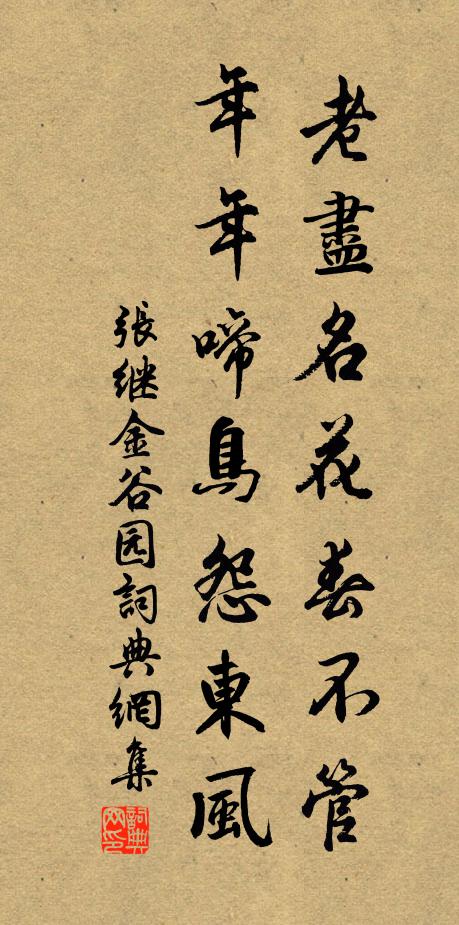 老盡名花春不管
年年啼鳥怨東風
張继金谷园詞典網集
詞典网印